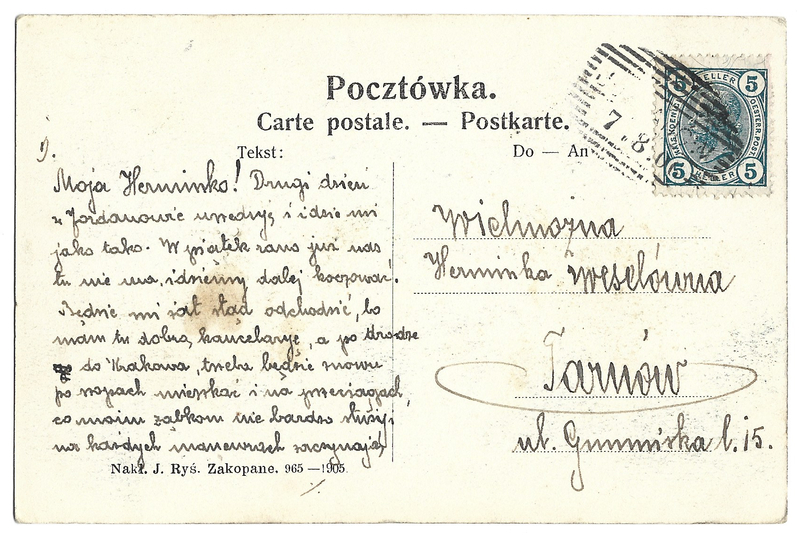 Pocztówka.
Carte postale. — Postkarte.
Tekst:
Do — An
5 HELLER 5
5 HELLER 5
OESTERR. POST
7. 8. 0
Moja Herminko! Drugi dzień
w Jordanowie urzęduję i idzie mi
jako tako. W piątek rano już nas
tu nie ma, idziemy dalej koczować.
Będzie mi żal stąd odchodzić, bo
mam tu dobrą kancelaryę, a po drodze
do Krakowa, trzeba będzie znowu
po szopach mieszkać i na przeciągach,
co moim ząbkom nie bardzo służy i
na każdych manewrach zaczynają
Nakł. J. Ryś. Zakopane. 965—1905.
Wielmożna
Herminka Weselówna
Tarnów
ul. Gumniska l. 15.